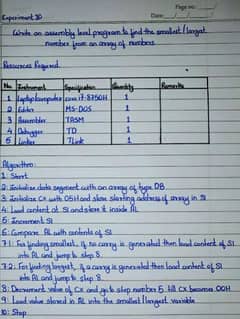 Page no:
Date:
Experiment 10
Write an assembly level program to find the smallest / largest
number from an array of numbers.
Resources Required
No Instrument Specification Quantity Remarks
1 Laptop/computer core i7-8750H 1
2 Editor MS-DOS 1
3 Assembler TASM 1
4 Debugger TD 1
5 Linker TLink 1
Algorithm:
1: Start
2: Initialize data segment with an array of type DB
3: Initialize CX with 05H and store starting address of array in SI
4: Load content at SI and store it inside AL
5: Increment SI
6: Compare AL with contents of SI
7.1: For finding smallest, if no carry is generated then load content of SI
into AL and jump to step 8.
7.2: For finding largest, if a carry is generated then load content of SI
into AL and jump to step 8
8: Decrement value of CX and go to step number 5 till CX becomes 00H
9: Load value stored in AL into the smallest/largest variable
10: Stop